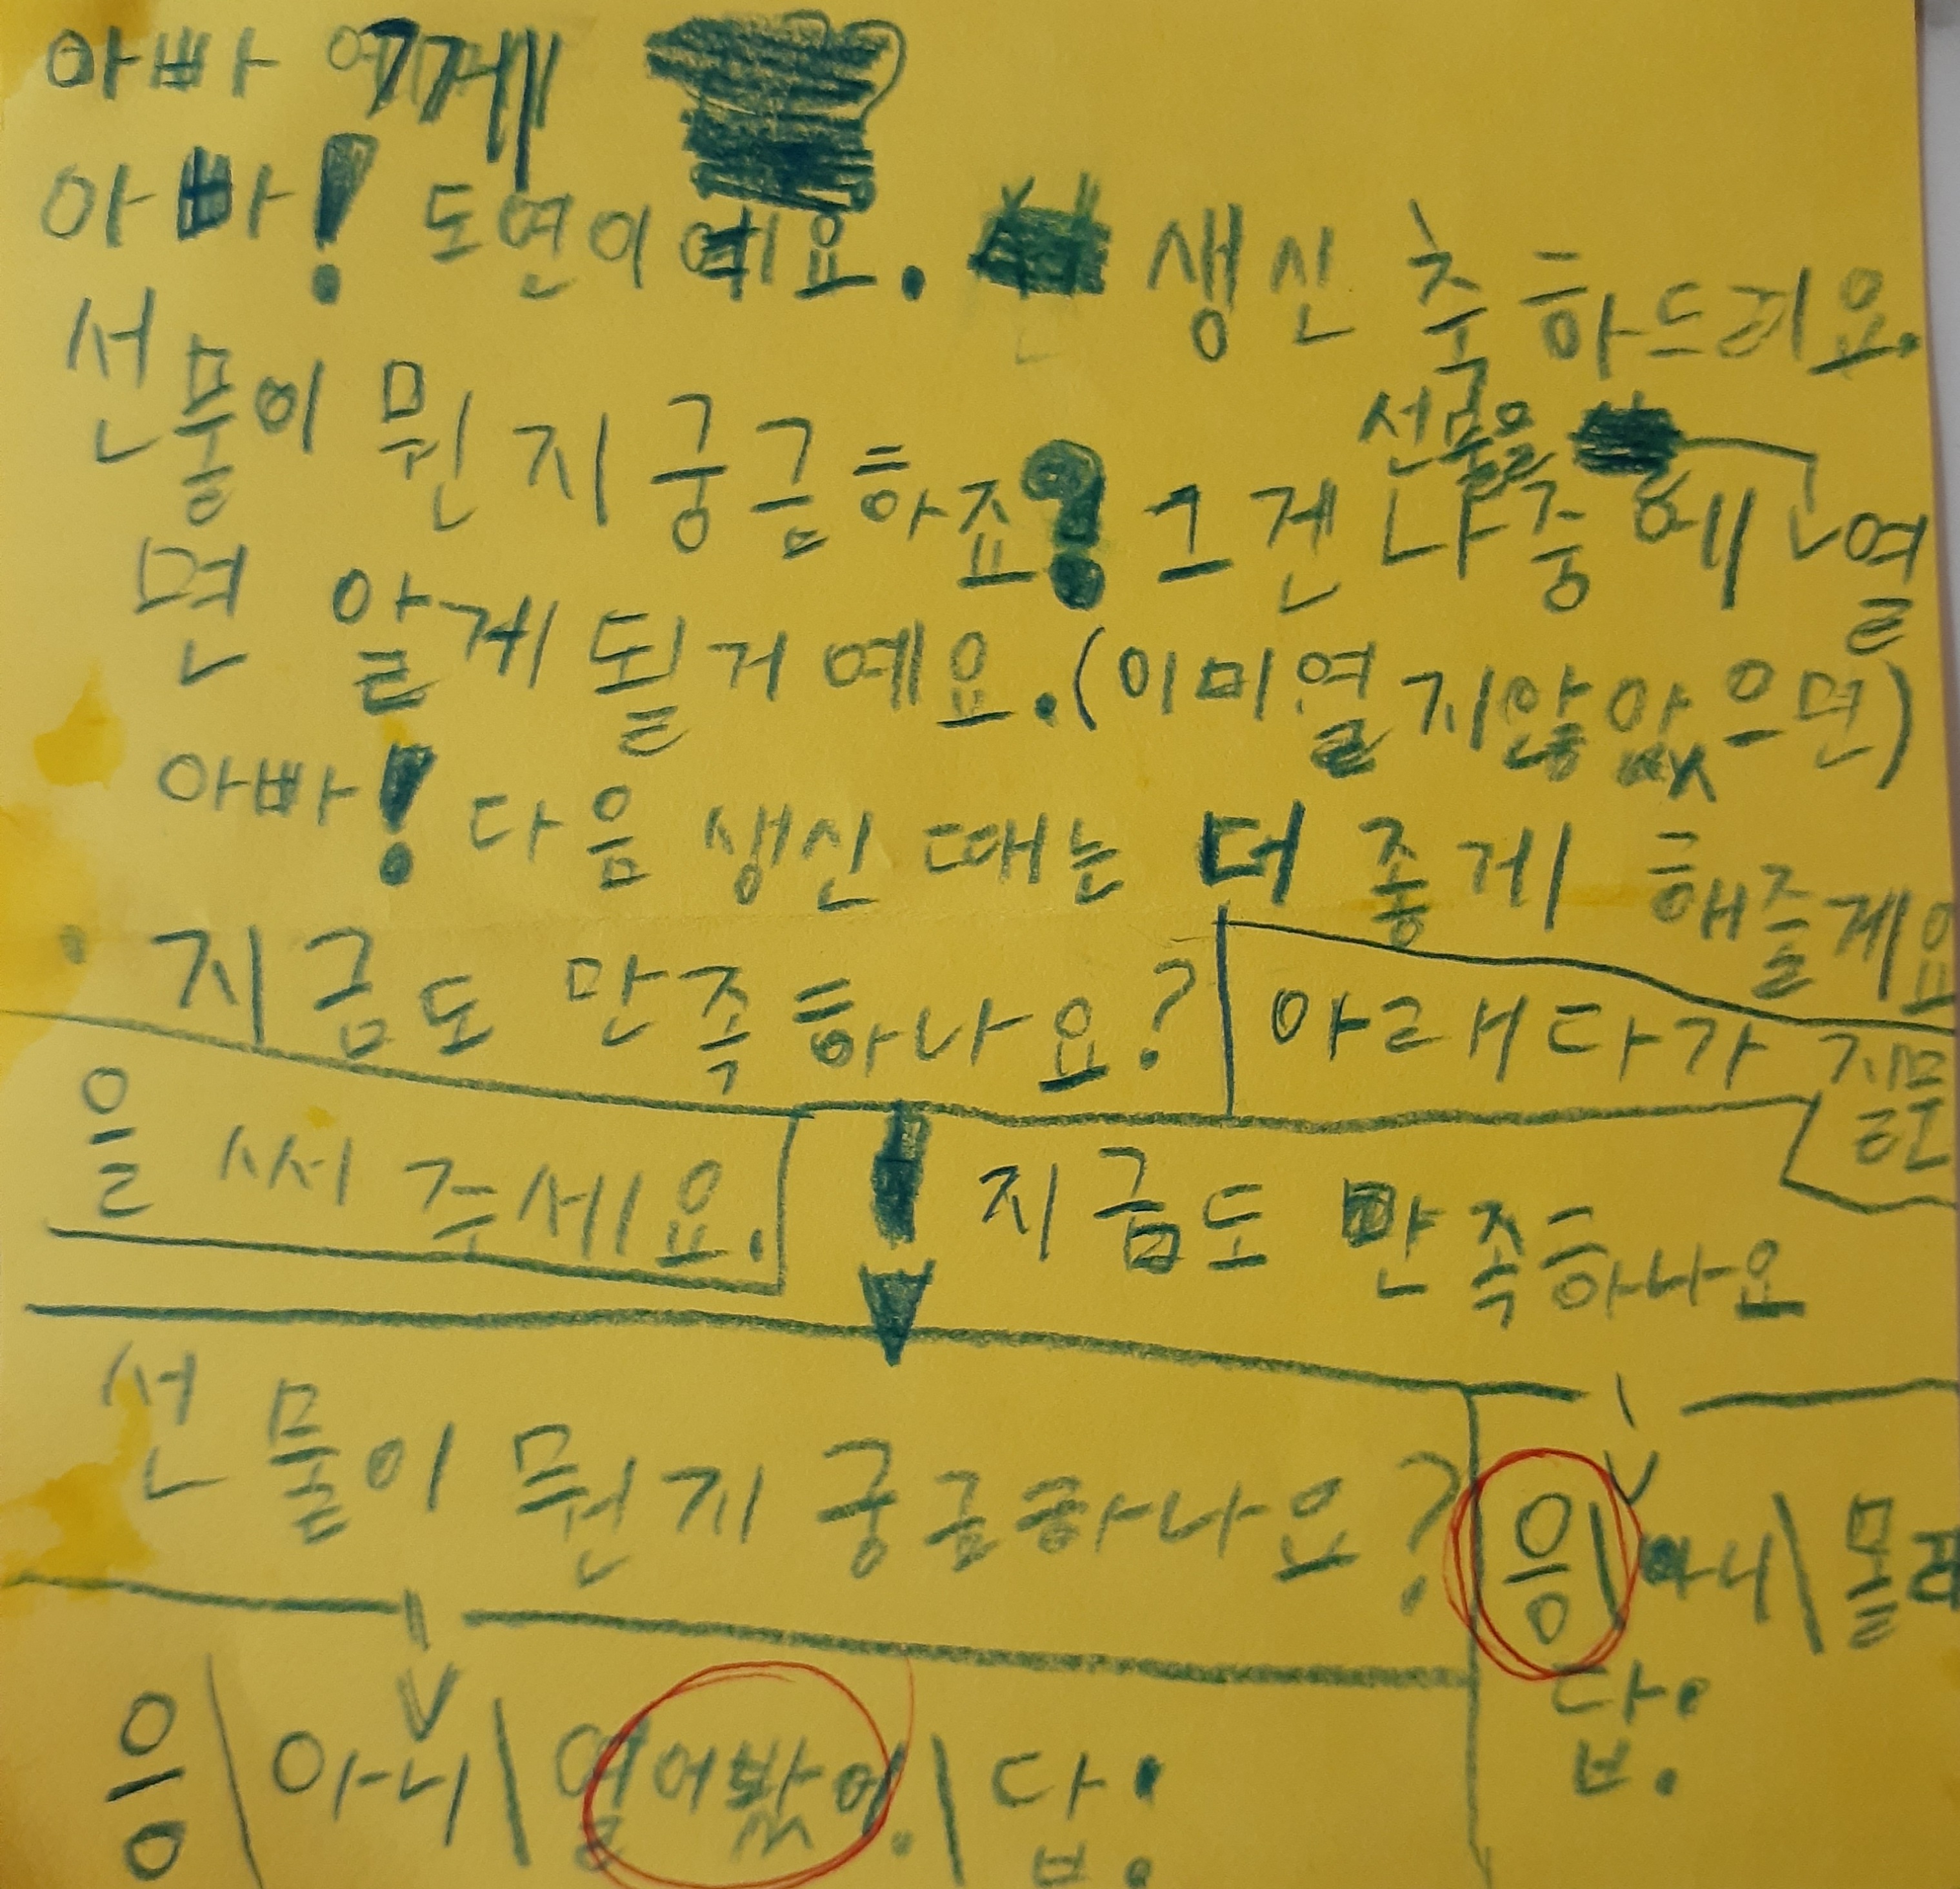 아빠 에게
아빠! 도연이예요. 생신 축하드려요.
선물이 뭔지 궁금하죠? 그건 나중에 선물을 열
면 알게 될거예요.(이미열지않았으면)
아빠! 다음 생신 때는 더 좋게 해줄게요
지금도 만족하나요? 아래다가 질문
을 써 주세요.
지금도 만족하나요
선물이 뭔지 궁금하나요?
응\아니\몰라
답:
응\아니\열어봤어.\답: